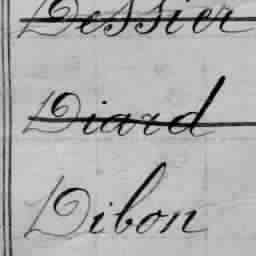 Dessier
Diard
Dibon